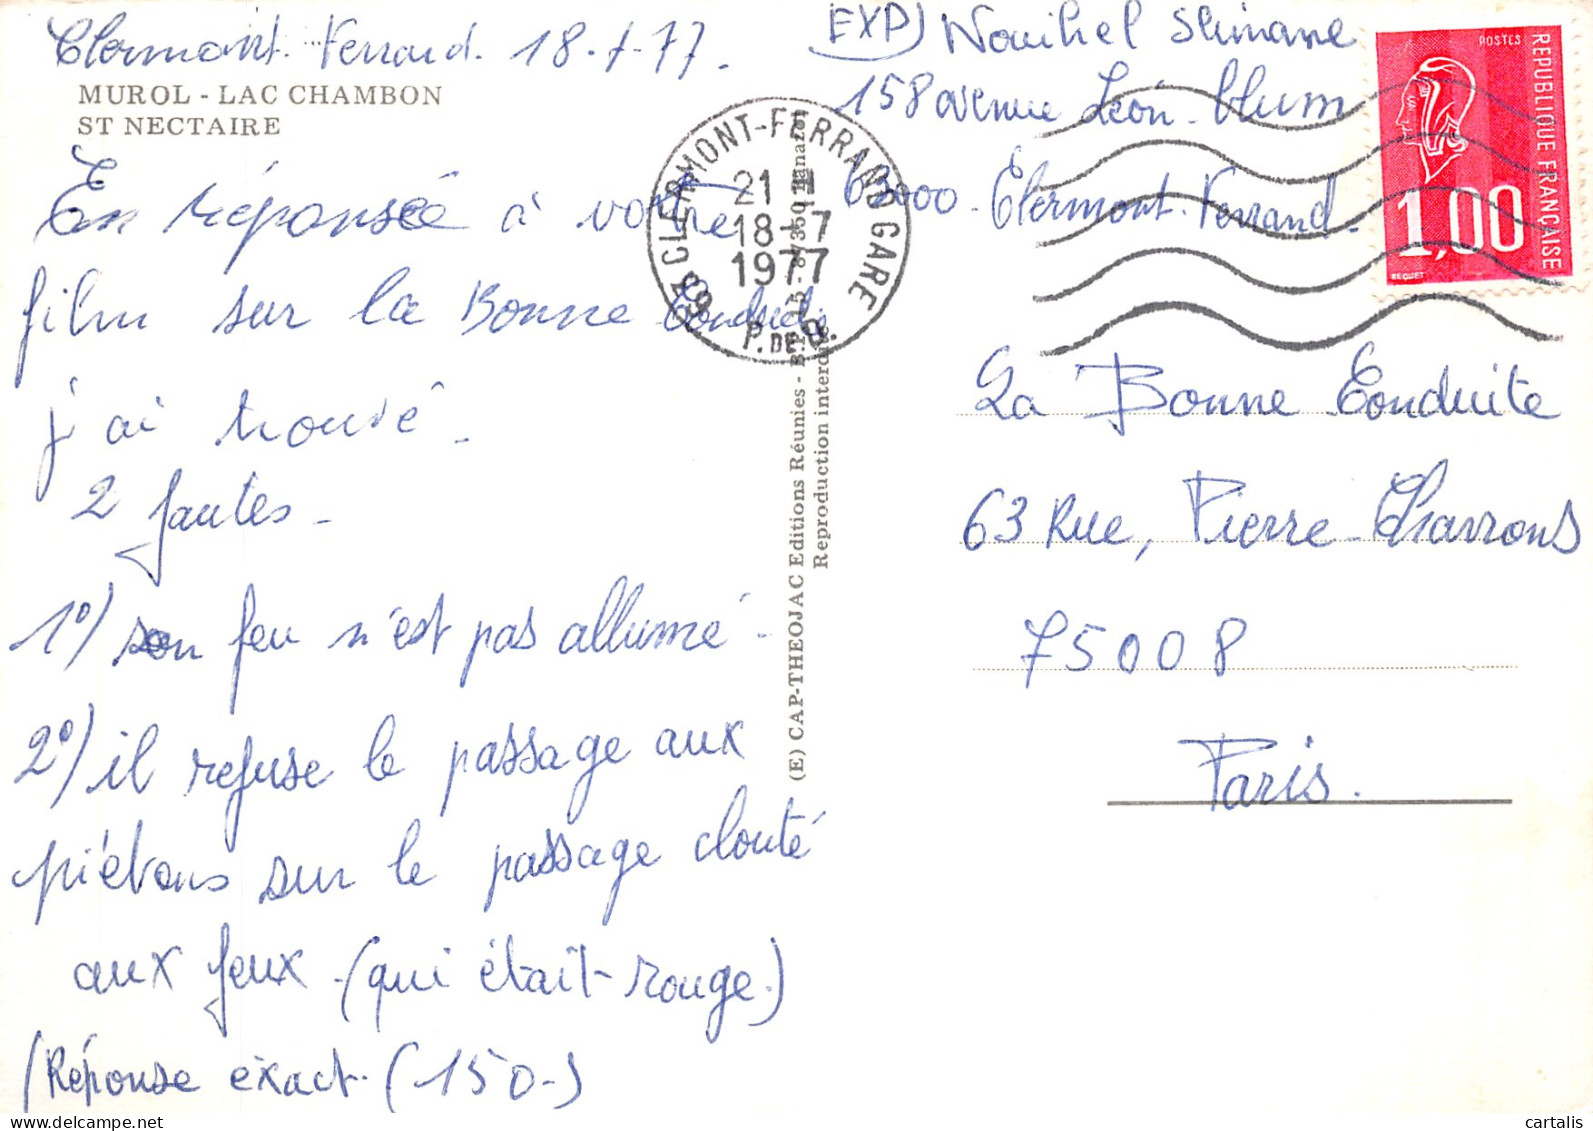 Clermont. Ferrand. 18.7.77.
MUROL - LAC CHAMBON
ST NECTAIRE
En réponsée à votre
film sur la Bonne Conduite
j'ai trouvé.
2 fautes.
1°) son feu n'est pas allumé.
2°) il refuse le passage aux
piétons sur le passage clouté
aux feux (qui était rouge.)
(Réponse exact. (150.)
(E) CAP-THEOJAC Editions Réunies -
Reproduction interdite
63 CLERMONT-FERRAND GARE
21 H
18-7
1977
P. DE D.
EXP) Nouihel Slimane
158 avenue Léon. blum
63000. Clermont. Ferrand.
POSTES
REPUBLIQUE FRANÇAISE
1,00
BEQUET
La Bonne Conduite
63 Rue, Pierre-Charrons
75008
Paris.
cartalis
www.delcampe.net